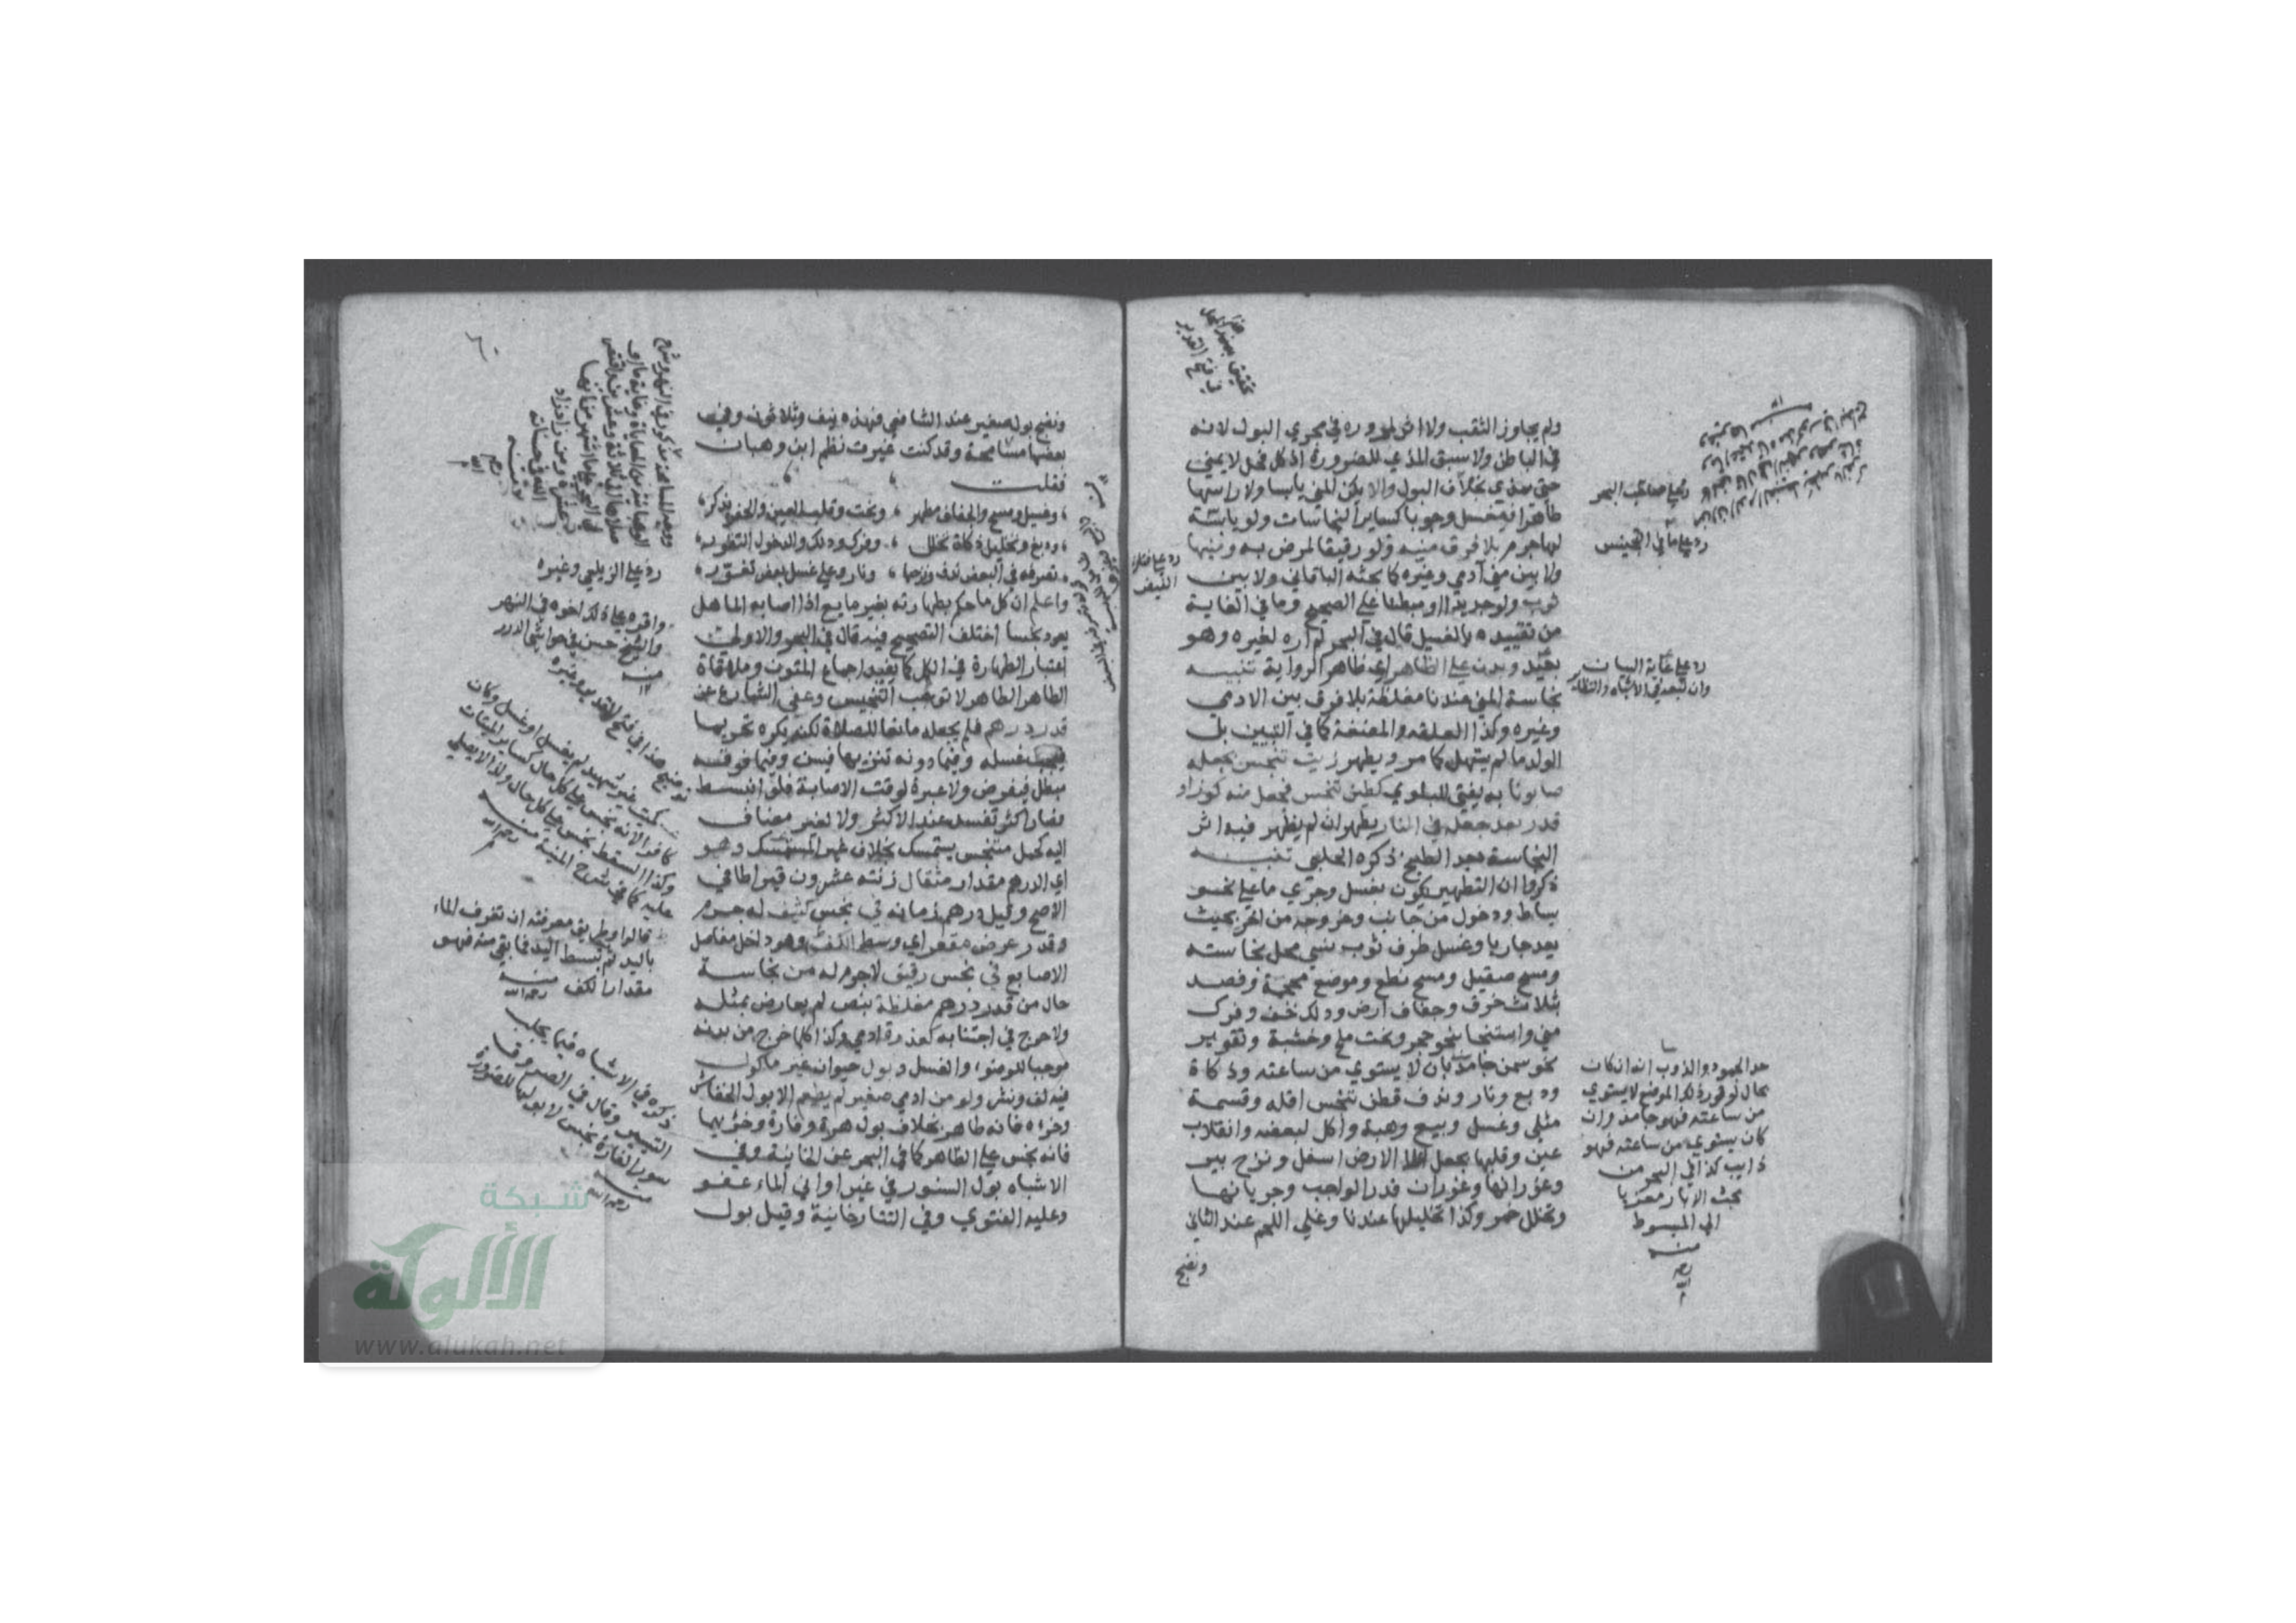 ولم يجاوز الثقب ولا اثر لمروره في مجرى البول لانه
في الباطن ولا سبق المذي للضرورة اذ كل فحل لا يمني
حتى يمذي بخلاف البول والا يكن المني يابسا ولا راسها
طاهرا فيغسل وجوبا كساير النجاسات ولو يابسة
لها جرم بلا فرق بين منيه ولو رقيقا لمرض به ومنيها
ولا بين مني آدمي وغيره كما بحثه الباقاني ولا بين
ثوب ولو جديدا او مبطنا على الصحيح وما في الغاية
من تقييده بالغسيل قال في البحر لم اره لغيره وهو
بعيد وبدن على الظاهر اي ظاهر الرواية تنبيه
نجاسة المني عندنا مغلظة بلا فرق بين الادمي
وغيره وكذا العلقة والمضغة كما في التبيين بل
الولد ما لم يستهل كما مر ويطهر زيت تنجس بجعله
صابونا به يفتى للبلوى كطين تنجس فجعل منه كوز او
قدر بعد جعله في النار يطهر ان لم يظهر فيه اثر
النجاسة بعد الطبخ ذكره الحلبي تنبيه
ذكروا ان التطهير يكون بغسل وجري ما على نحو
بساط ودخول من جانب وخروجه من اخر بحيث
يعد جاريا وغسل طرف ثوب نسي محل نجاسته
ومسح صقيل ومسح نطع وموضع محجمة وفصد
بثلاث خرق وجفاف ارض ودلك خف وفرك
مني واستنجا بنحو حجر ونحت ملح وخشبة وتقوير
نحو سمن جامد بان لا يستوي من ساعته وذكاة
ودبغ ونار وندف قطن تنجس اقله وقسمة
مثلي وغسل وبيع وهبة واكل لبعضه وانقلاب
عين وقلبها بجعل اعلا الارض اسفل ونزح بير
وغورانها وغوران قدر الواجب وجريانها
وتخلل خمر وكذا تخليلها عندنا وغلي اللحم عند الثاني
ونضح
رد على صاحب البحر
رد على ما في التجنيس
رد على غاية البيان
وان تبعه في الاشباه والنظائر
حد الجمود والذوب انه ان كان
بحال لو قور ذلك الموضع لا يستوي
من ساعته فهو جامد وان
كان يستوي من ساعته فهو
ذايب كذا في البحر من
بحث الابار معزيا
الى المبسوط
منه
رحمه الله
ونضح بول صغير عند الشافعي فهذه نيف وثلاثون وفي
بعضها مسامحة وقد كنت غيرت نظم ابن وهبان
فقلت
وغسل ومسح والجفاف مطهر ، ونحت وقلب العين والحفر يذكر
ودبغ وتخليل ذكاة تخلل ، وفرك ودلك والدخول التغور
تصرفه في البعض ندف ونزحها ، ونار وغلي غسل بعض تقور
واعلم ان كل ما حكم بطهارته بغير مايع اذا اصابه الما هل
يعود نجسا اختلف التصحيح فيه قال في البحر والاولى
اعتبار الطهارة في الكل كما يفيده اجماع المتون وملاقاة
الطاهر الطاهر لا توجب التنجيس وعفى الشارع عن
قدر درهم فلم يجعله مانعا للصلاة لكنه يكره تحريما
فيجب غسله وفيما دونه تنزيها فيسن وفيما فوقه
مبطل فيفرض ولا عبرة لوقت الاصابة فلو انبسط
فصار اكثر تفسد عند الاكثر ولا لغير مضاف
اليه كحمل متنجس يستمسك بخلاف غير المستمسك وهو
اي الدرهم مقدار مثقال زنته عشرون قيراطا في
الاصح وقيل درهم زمانه في نجس كثيف له جرم
وقدر عرض مقعر اي وسط الكف وهو داخل مفاصل
الاصابع في نجس رقيق لا جرم له من نجاسة
حال من قدر درهم مغلظة بنص لم يعارض بمثله
ولا حرج في اجتنابه كعذرة ادمي وكذا كلما خرج من بدنه
موجبا للوضوء والغسل وبول حيوان غير ماكول
فيه لف ونشر ولو من ادمي صغير لم يطعم الا بول الخفاش
وخرءه فانه طاهر بخلاف بول هرة وفارة وخرئهما
فانه نجس على الظاهر كما في البحر عن الخانية وفي
الاشباه بول السنور في غير اواني الماء عفو
وعليه الفتوى وفي التتارخانية وقيل بول
رد على الزيلعي وغيره
واقره عليه كذلك اخوه في النهر
والشيخ حسن في حواشي الدرر
قالوا وطريق معرفته ان تغرف الماء
باليد ثم تبسط اليد فما بقي منه فهو
مقدار الكف منه رحمه الله
ذكره في الاشباه فيما يجلب
التيسير وقال في الفروق
سور الفارة نجس لا بولها للضرورة
منه
رحمه الله
شبكة
الألوكة
www.alukah.net